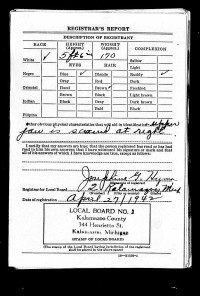 REGISTRAR'S REPORT
DESCRIPTION OF REGISTRANT
RACE HEIGHT (Approx.) WEIGHT (Approx.) COMPLEXION
5 ft 6 170
White ✓ EYES HAIR Sallow
Light
Negro Blue ✓ Blonde Ruddy ✓
Gray Red Dark
Oriental Hazel Brown ✓ Freckled
Brown Black Light brown
Indian Black Gray Dark brown
Bald Black
Filipino
Other obvious physical characteristics that will aid in identification upper
jaw is scarred at right
I certify that my answers are true; that the person registered has read or has had
read to him his own answers; that I have witnessed his signature or mark and that
all of his answers of which I have knowledge are true, except as follows:
Josephine
Registrar for Local Board 2 Kalamazoo Mich
Date of registration April 27, 1942
LOCAL BOARD NO. 2
Kalamazoo County
344 Henrietta St.
Kalamazoo, Michigan
(STAMP OF LOCAL BOARD)
(The stamp of the Local Board having jurisdiction of the registrant
shall be placed in the above space)